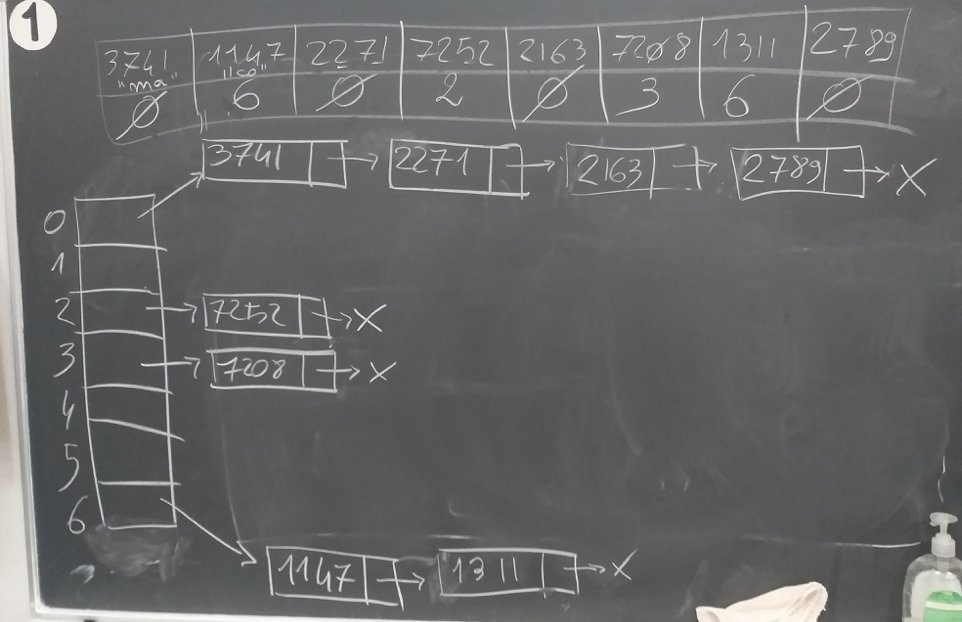 1
3741 1147 2271 7252 2163 7208 1311 2789
"ma" "co"
Ø 6 Ø 2 Ø 3 6 Ø
3741 → 2271 → 2163 → 2789 → X
0
1
2 → 7252 → X
3 → 7208 → X
4
5
6
1147 → 1311 → X